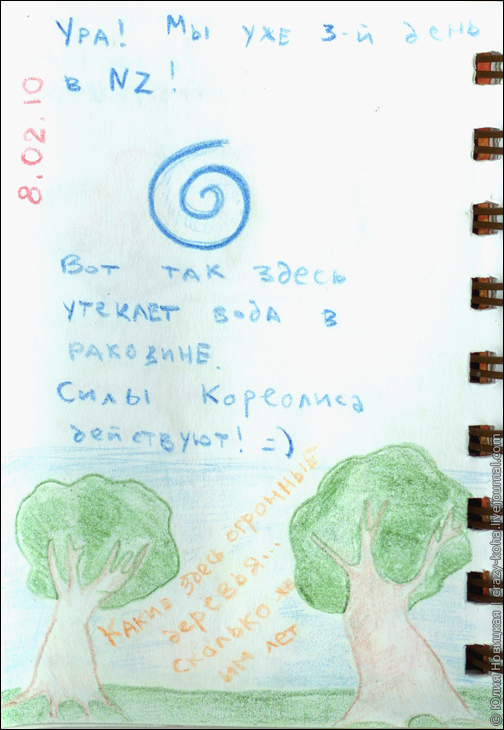 Ура! Мы уже 3-й день
в NZ!
8.02.10
Вот так здесь
утекает вода в
раковине.
Силы Кореолиса
действуют! =)
Какие здесь огромные
деревья...
сколько же
им лет
© Юлия Новицкая crazy-koha.livejournal.com